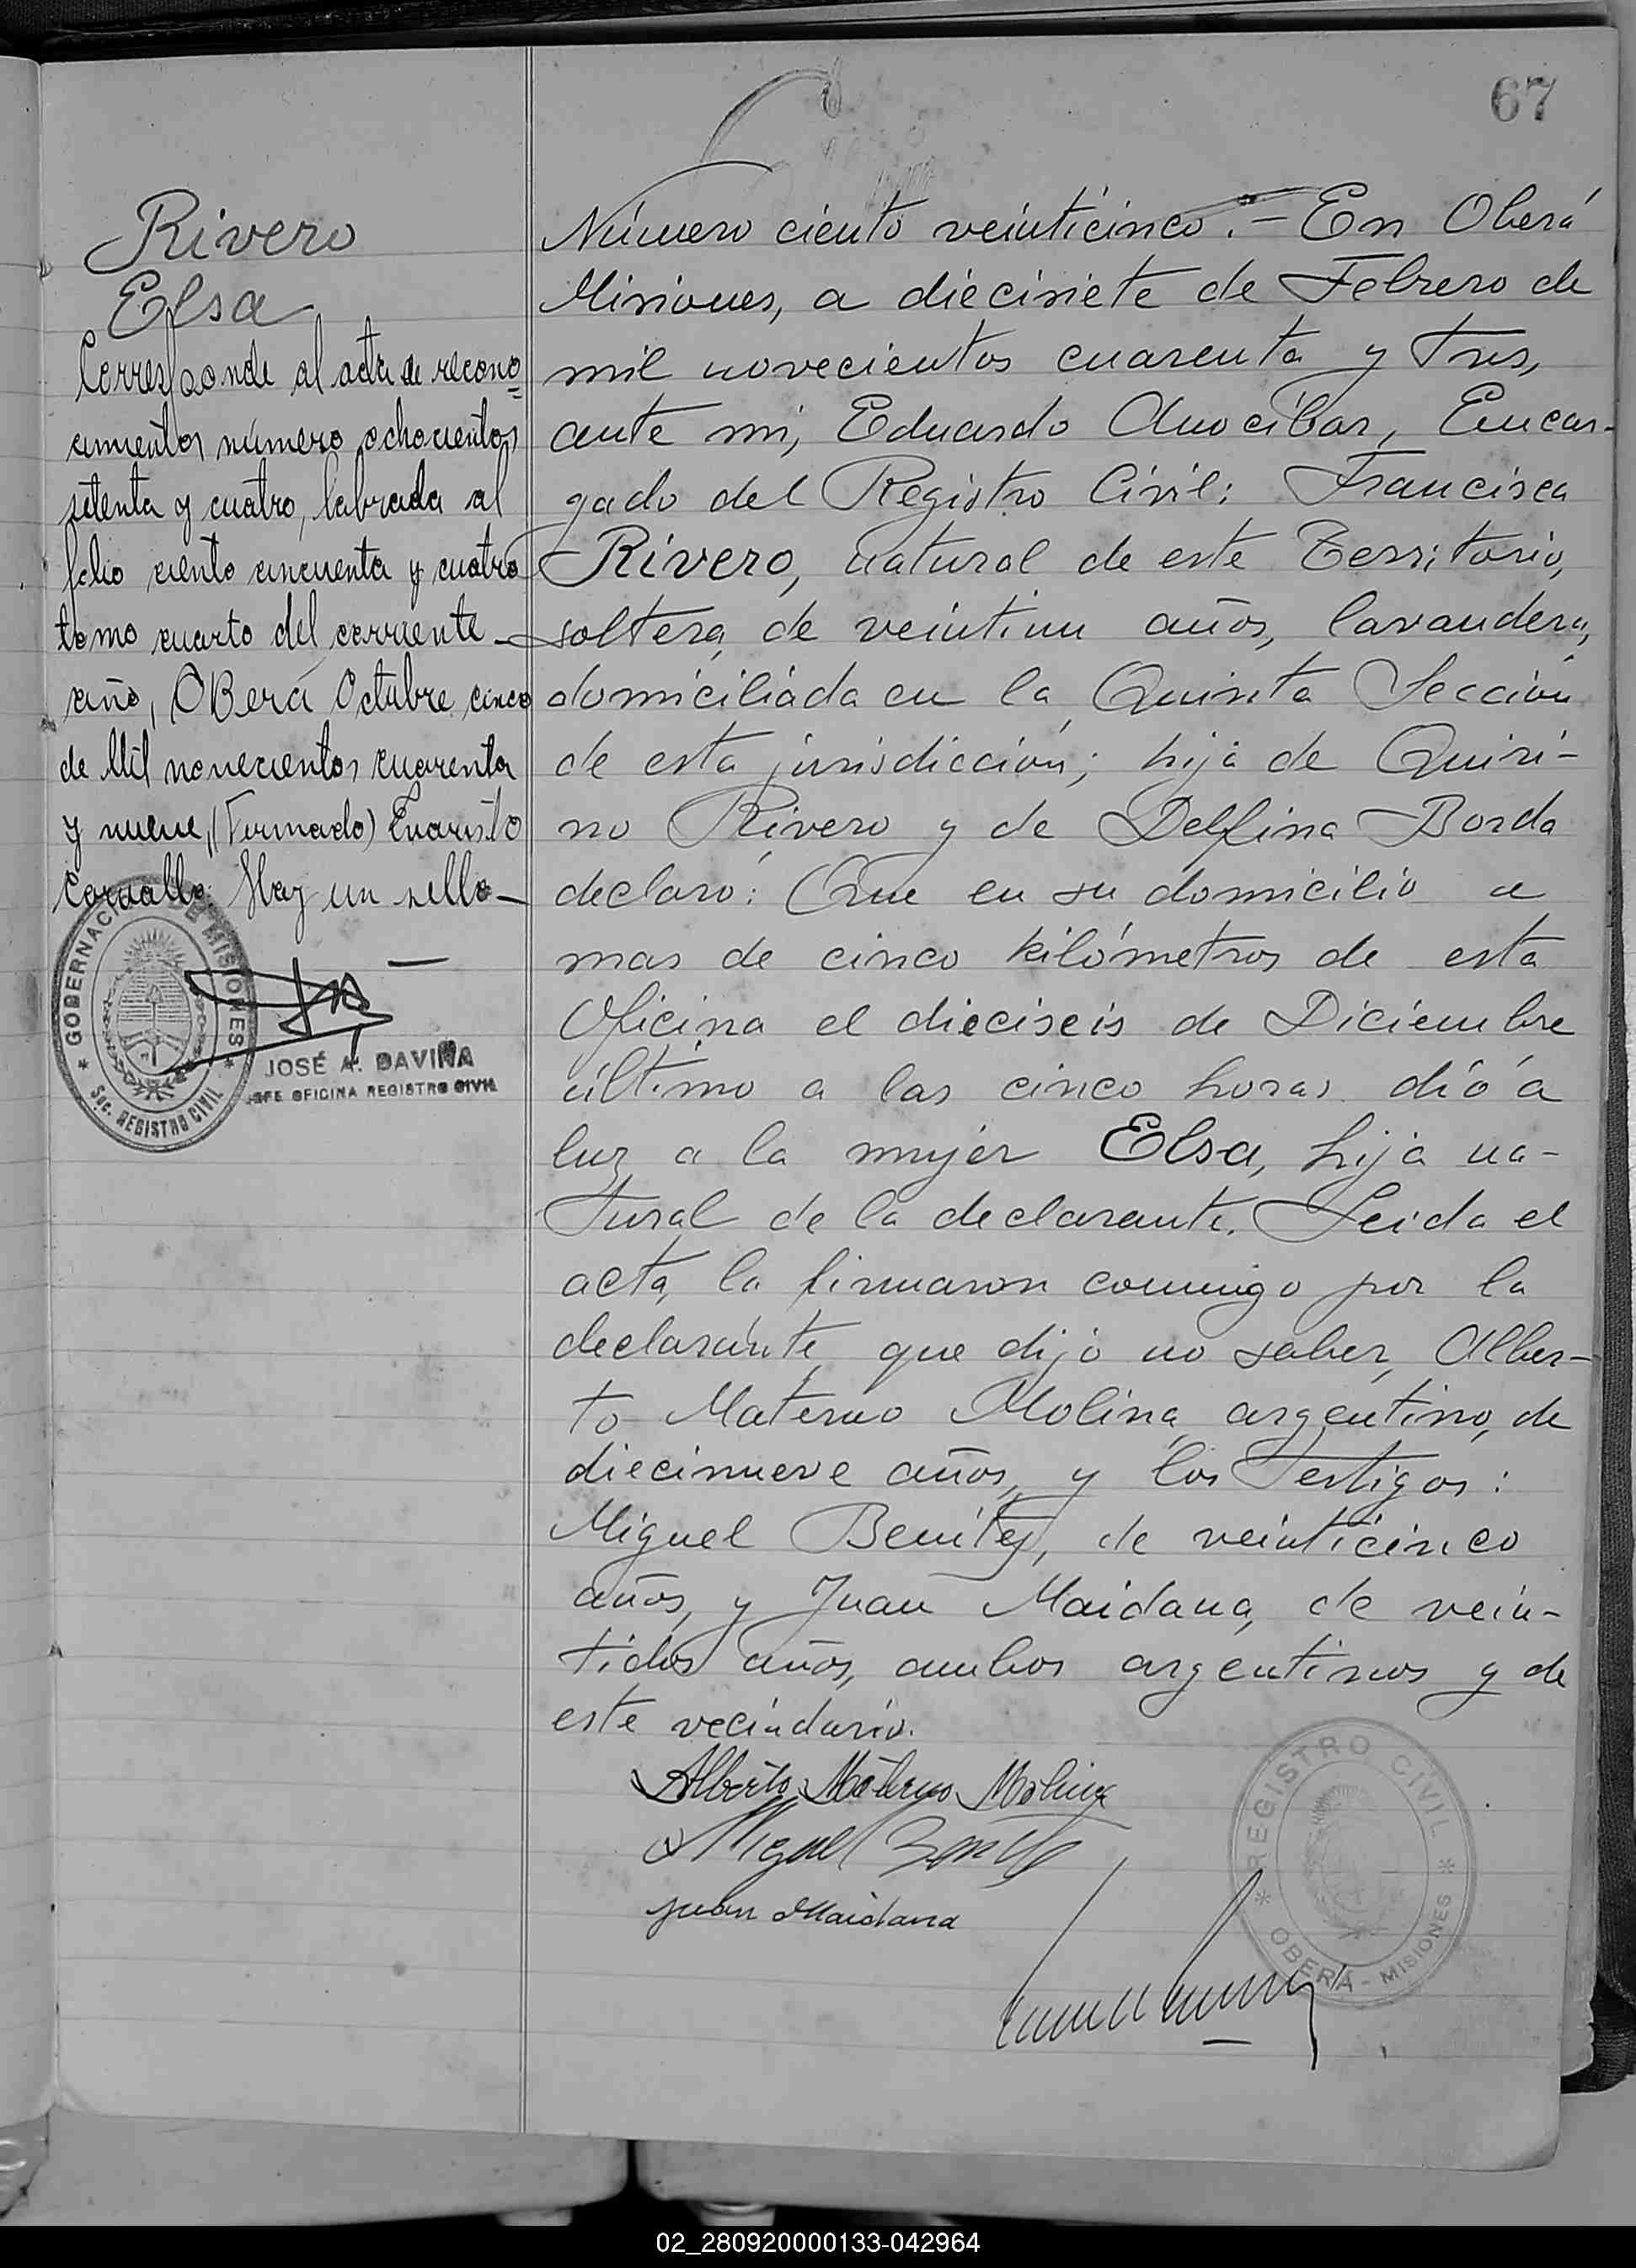 67
Rivero
Elsa
Corresponde al acta de recono=
cimientos número ochocientos
setenta y cuatro, labrada al
folio ciento cincuenta y cuatro
tomo cuarto del corriente
año, OBerá Octubre cinco
de Mil novecientos cuarenta
y nueve, (Firmado) Evaristo
Carvallo. Hay un sello—
GOBERNACION DE MISIONES
Sec. REGISTRO CIVIL
JOSÉ A. DAVIÑA
JEFE OFICINA REGISTRO CIVIL
Número ciento veinticinco.- En Oberá
Misiones, a diecisiete de Febrero de
mil novecientos cuarenta y tres,
ante mi, Eduardo Anocíbar, Encar-
gado del Registro Civil: Francisca
Rivero, natural de este Territorio,
soltera, de veintiun años, lavandera,
domiciliada en la Quinta Sección
de esta jurisdicción; hija de Quiri-
no Rivero y de Delfina Borda
declaró: Que en su domicilio a
mas de cinco kilómetros de esta
Oficina el dieciseis de Diciembre
último a las cinco horas dió a
luz a la mujer Elsa, hija na-
tural de la declarante. Leida el
acta, la firmaron conmigo por la
declarante que dijo no saber, Alber-
to Materno Molina, argentino, de
diecinueve años, y los Testigos:
Miguel Benítez, de veinticinco
años, y Juan Maidana, de vein-
tidos años, ambos argentinos y de
este vecindario.
Alberto Materno Molina
Miguel Benítez
Juan Maidana
REGISTRO CIVIL
OBERÁ - MISIONES
02_280920000133-042964